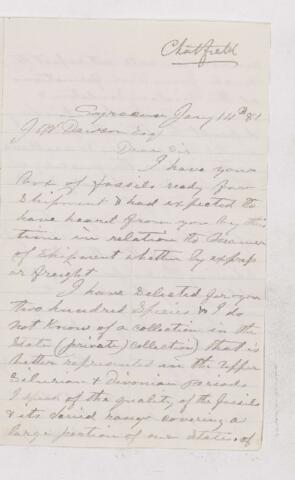 Chatfield
Syracuse Jany 14th 81
J W Dawson Esq
Dear Sir
I have your
box of fossils ready for
Shipment & had expected to
have heard from you by this
time in relation to manner
of Shipment whether by express
or freight
I have Selected for you
two hundred Species & I do
not know of a collection in the
State (private) Collection) that is
better represented in the upper
Silurian & Divonian Periods
I speak of the quality of the fossils
& its varied range covering a
large portion of our State, of